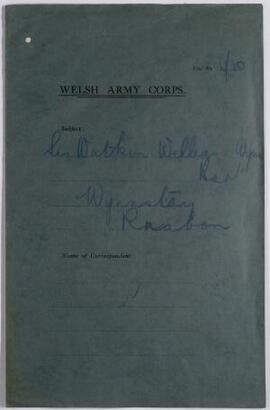 File No 4/20
WELSH ARMY CORPS.
Subject:
Sir Watkin Williams Wynn
Bart
Wynnstay
Ruabon
Name of Correspondent: